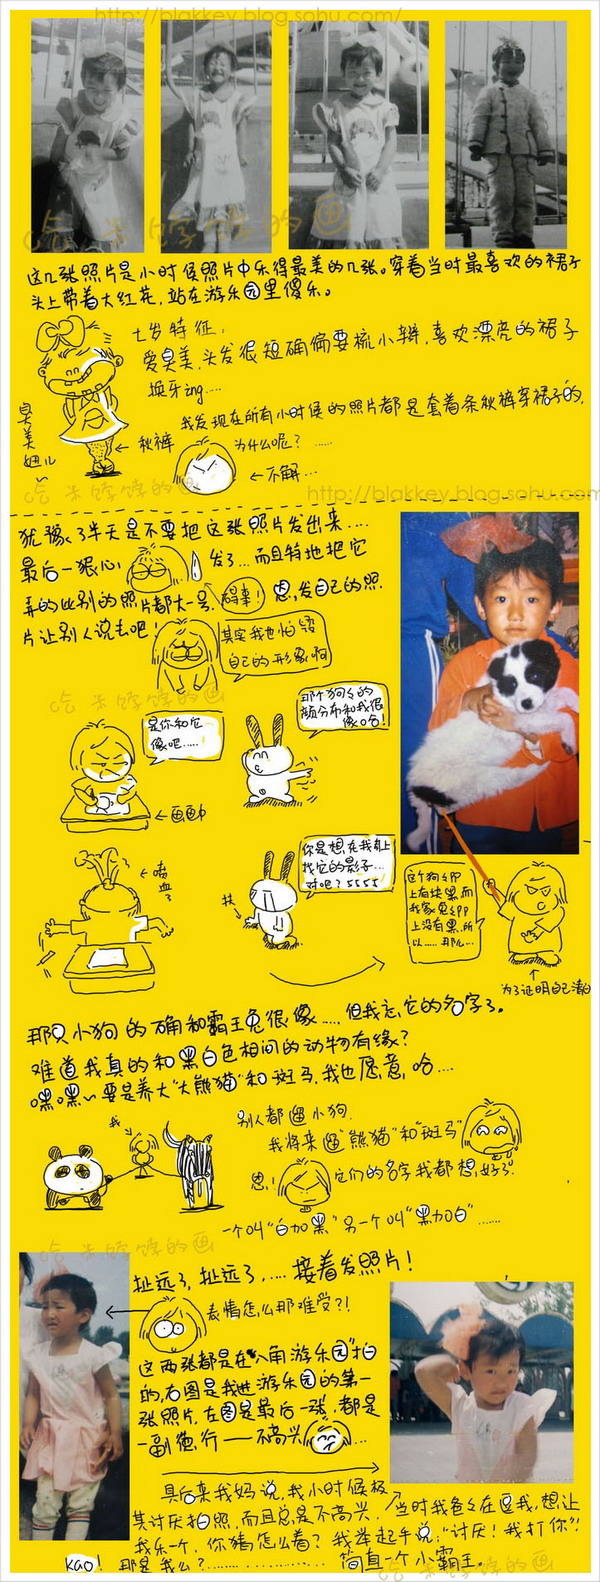 http://blakkey.blog.sohu.com/
这几张照片是小时侯照片中乐得最美的几张。穿着当时最喜欢的裙子
头上带着大红花，站在游乐园里傻乐。
七岁特征，
爱臭美，头发很短确偏要梳小辫，喜欢漂亮的裙子
换牙ing……
我发现现在所有小时侯的照片都是套着条秋裤穿裙子的，
为什么呢？……
臭美妞儿~
←秋裤
←不解…
http://blakkey.blog.sohu.com/
犹豫了半天是不要把这张照片发出来……
最后一狠心，发了…而且特地把它
弄的比别的照片都大一号。
得事！
恩，发自己的照
片让别人说去吧！
其实我也怕毁
自己的形象啊
是你和它
像吧……
那个狗々的
颜分布和我很
像哈！
←画画中
←喷血了
你是想在我身上
找它的影子…
对吧？5555
这个狗々PP
上有块黑，而
我家兔々PP
上没有黑，所
以……那么…
为了证明自己清白
那只小狗的确和霸王兔很像……但我忘它的名字了。
难道我真的和黑白色相间的动物有缘？
嘿嘿~要是养大“大熊猫”和斑马，我也愿意，哈……
我
别人都遛小狗.
我将来遛“熊猫”和“斑马”
恩！
它们的名字我都想好了
一个叫“白加黑”另一个叫“黑加白”……
扯远了，扯远了……接着发照片！
表情怎么那难受？！
这两张都是在“八角游乐园”拍
的，右图是我进游乐园的第一
张照片，左图是最后一张，都是
一副德行——不高兴…
具后来我妈说，我小时侯极
其讨厌拍照，而且总是不高兴，当时我爸々在逗我，想让
我乐一个，你猜怎么着？我举起手说：“讨厌！我打你”！
kao！那是我么？………………简直一个小霸王。